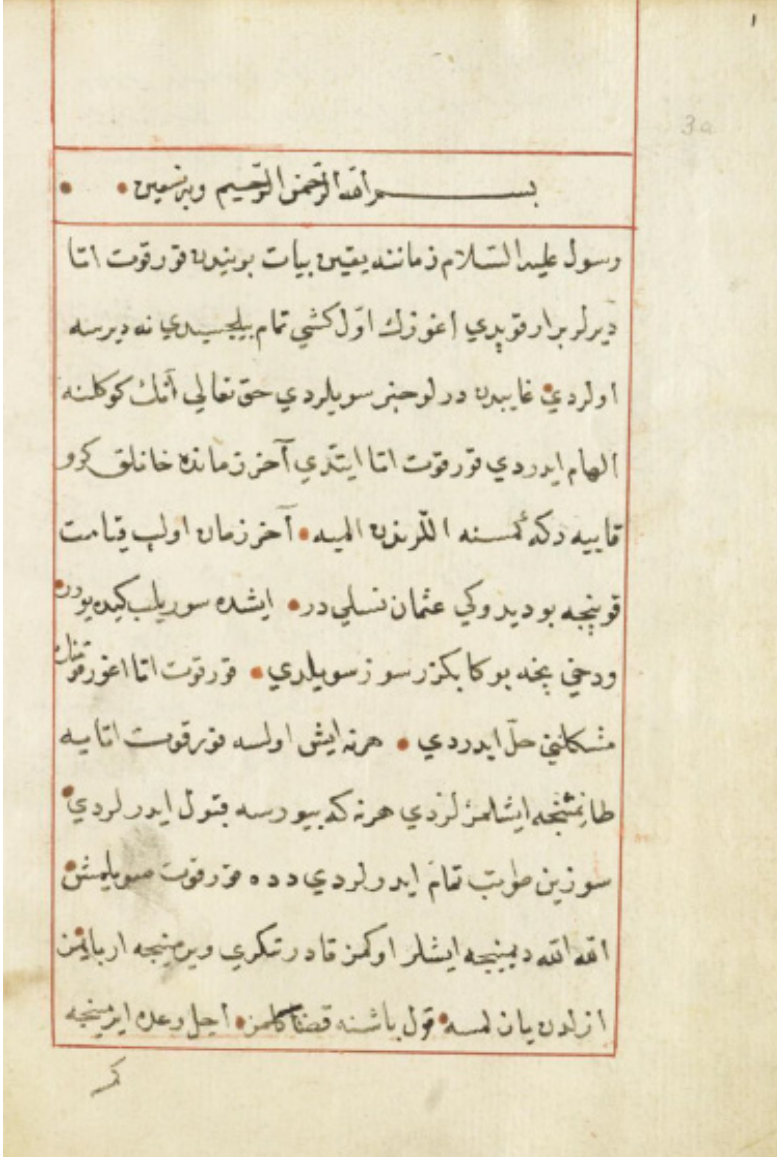 ١
3a
بسم الله الرحمن الرحيم وبه نستعين
رسول عليه السلام زماننه يقين بيات بويندن قورقوت اتا
ديرلر بر ار قوپدي اغوزك اوّل كشي تمام بيلجسيدي نه ديرسه
اولردي غايبدن درلو خبر سويلردي حق تعالي آنك كوكلنه
الهام ايدردي قورقوت اتا ايتدي آخر زمانده خانلق كرو
قاييه دكه كمسنه اللرندن الميه آخر زمان اولب قيامت
قوپنجه بو ديدوكي عثمان نسلي در ايشده سوريلب كيده يورر
ودخي نجه بوكا بكزر سوز سويلدي قورقوت اتا اغوز قومنك
مشكلني حلّ ايدردي هر نه ايش اولسه قورقوت اتايه
طانشمنجه ايشلمزلردي هر نه كه بيورسه قبول ايدرلردي
سوزين طوتب تمام ايدرلردي دده قورقوت سويلمش
الله الله ديمينجه ايشلر اوكمز قادر تكري ويرمينجه ار بايمز
ازلدن يازلمسه قول باشنه قضا كلمز اجل وعده ايرمينجه